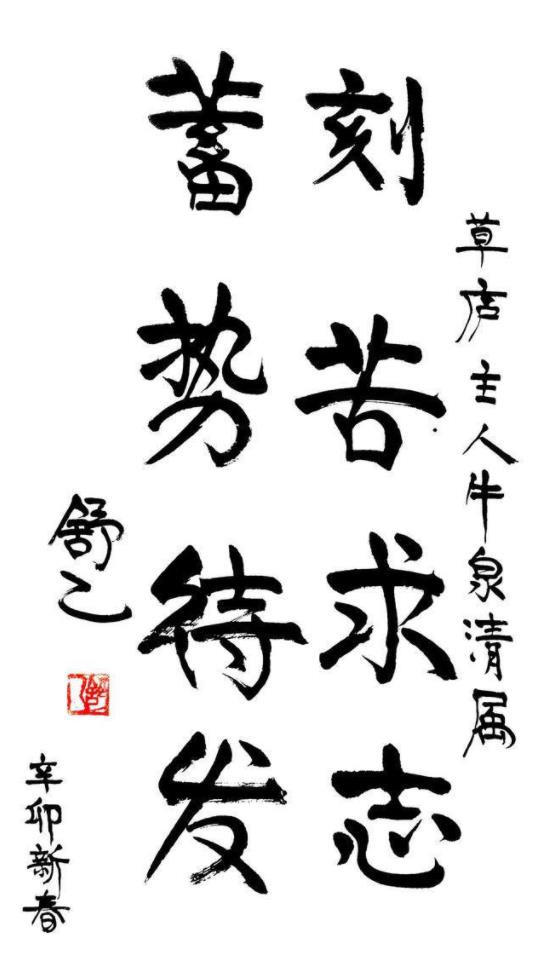 草店主人牛泉清属
刻苦求志
蓄势待发
舒乙
辛卯新春